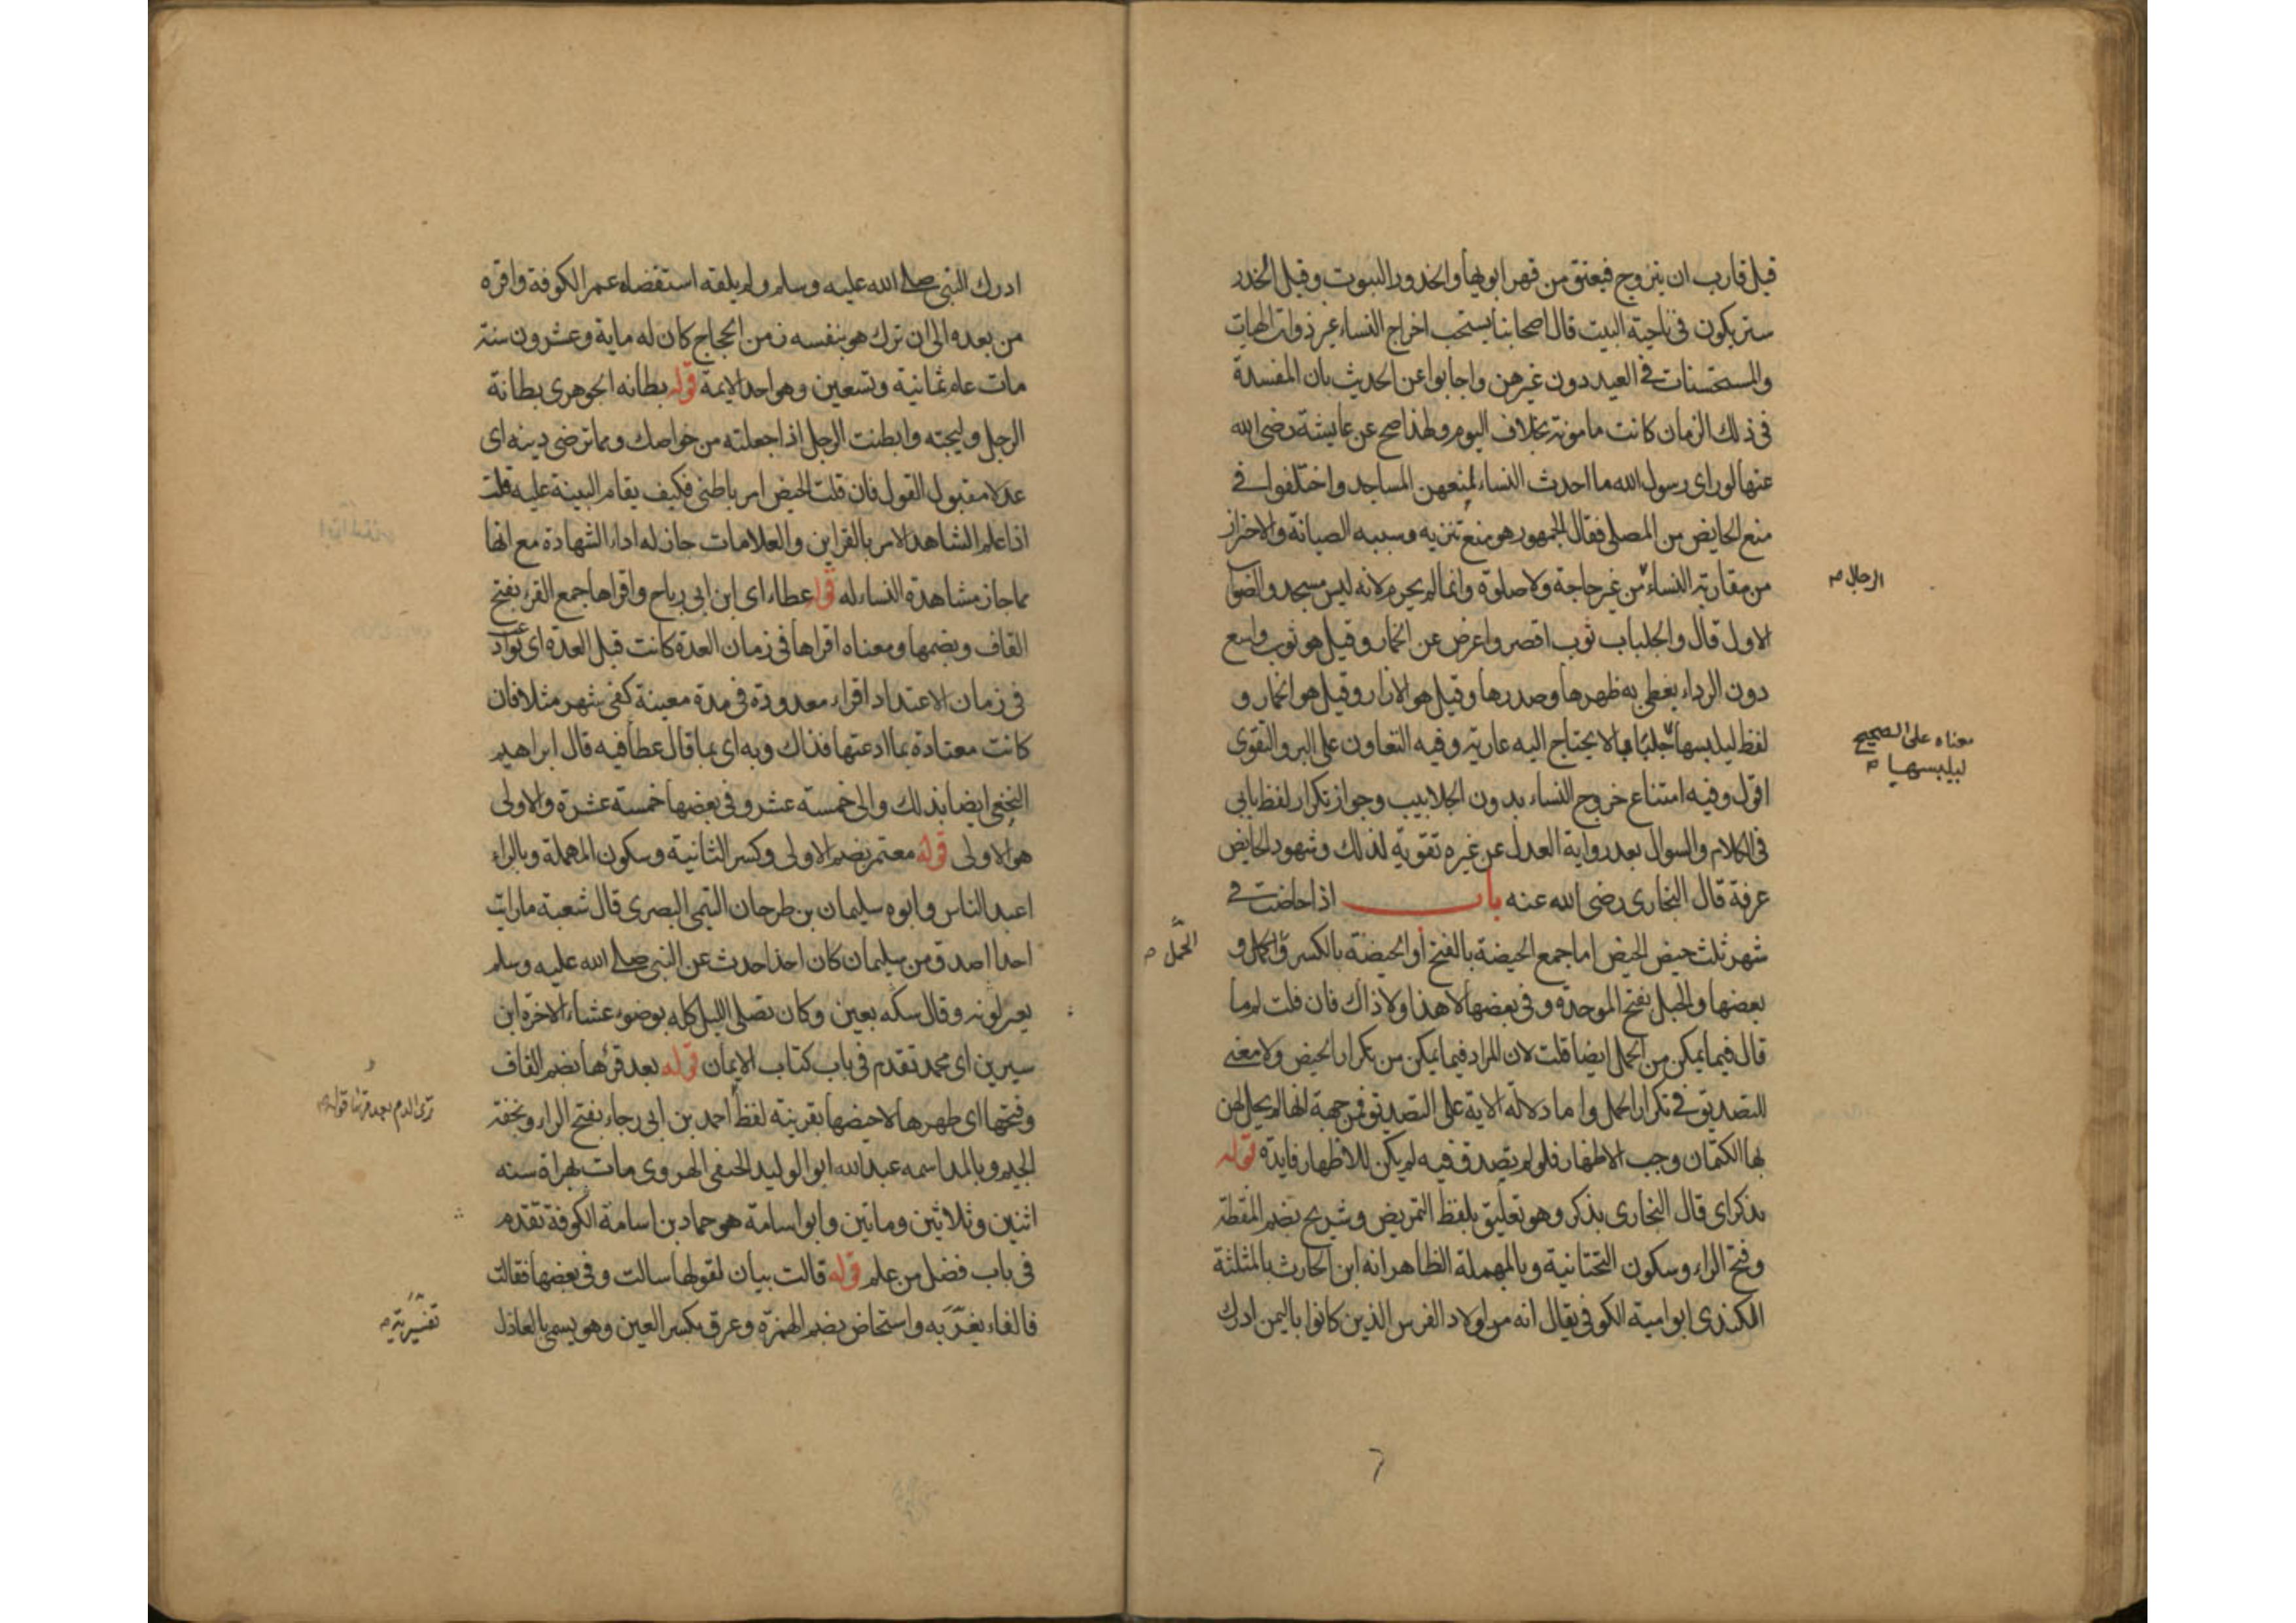 قيل قارب ان يتزوج فيعتق من قهر ابويها والخدور البيوت وقيل الخدر
ستر يكون فى ناحية البيت قال اصحابنا يستحب اخراج النساء غير ذوات الهيات
والمستحسنات فى العيد دون غيرهن واجابوا عن الحديث بان المفسدة
فى ذلك الزمان كانت مامونة بخلاف اليوم ولهذا صح عن عايشة رضى الله
عنها لو راى رسول الله ما احدث النساء لمنعهن المساجد واختلفوا فى
منع الحايض من المصلى فقال الجمهور هو منع تنزيه وسببه الصيانة والاحتراز
من مقارنة النساء من غير حاجة ولا صلوة وانما لم يحرم لانه ليس مسجد والصواب
الرجال
الاول قال والجلباب ثوب اقصر واعرض عن الخمار وقيل هو ثوب واسع
دون الرداء يغطى به ظهرها وصدرها وقيل هو الازار وقيل هو الخمار و
لفظ ليلبسها جلبابا ما لا يحتاج اليه عارية وفيه التعاون على البر والتقوى
معناه على الصحيح
ليلبسها
اقول وفيه امتناع خروج النساء بدون الجلابيب وجواز تكرار لفظ بابى
فى الكلام والسوال بعد رواية العدل عن غيره تقوية لذلك وشهود الحايض
عرفة قال البخارى رضى الله عنه باب اذا حاضت فى
شهر ثلث حيض الحيض اما جمع الحيضة بالفتح او الحيضة بالكسر والحمل و
الحمل
بعضها والحبل بفتح الموحدة وفى بعضها لا هذا ولا ذاك فان قلت لم ما
قال فيما يمكن من الحمل ايضا قلت لان المراد فيما يمكن من تكرار الحيض ولا معنى
للتصديق فى تكرار الحمل واما دلالة الاية على التصديق فمن جهة انها لم يحل لهن
بها الكتمان وجب الاظهار فلو لم يصدق فيه لم يكن للاظهار فايدة قوله
يذكر اى قال البخارى يذكر وهو تعليق بلفظ التمريض وشريح بضم المنقطة
وفتح الراء وسكون التحتانية وبالمهملة الظاهر انه ابن الحارث بالمثلثة
الكندى ابو امية الكوفى يقال انه من اولاد الفرس الذين كانوا باليمن ادرك
ادرك النبى صلى الله عليه وسلم ولم يلقه استقضاه عمر الكوفة واقره
من بعده الى ان ترك هو بنفسه زمن الحجاج كان له ماية وعشرون سنة
مات عام ثمانية وتسعين وهو احد الايمة قوله بطانه الجوهرى بطانة
الرجل وليجته وابطنت الرجل اذا جعلته من خواصك ومما ترضى دينه اى
عدلا مقبول القول فان قلت الحيض امر باطنى فكيف يقام البينة عليه قلت
اذا علم الشاهد الامر بالقراين والعلامات جاز له اداء الشهادة مع انها
مما جاز مشاهدة النساء له قوله عطاء اى ابن ابى رباح واقراها جمع القرء بفتح
القاف وبضمها ومعناه اقراها فى زمان العدة كانت قبل العدة اى
فى زمان الاعتداد اقراء معدودة فى مدة معينة كفى شهر مثلا فان
كانت معتادة بما ادعتها فذاك وبه اى بما قال عطا فيه قال ابراهيم
النخعى ايضا بذلك والى خمسة عشر وفى بعضها خمسة عشرة والاولى
هو الاولى قوله معتمر بضم الاولى وكسر الثانية وسكون المهملة وبالراء
اعبد الناس وابوه سليمان بن طرخان التيمى البصرى قال شعبة ما رايت
احدا اصدق من سليمان كان اذا حدث عن النبى صلى الله عليه وسلم
يغير لونه وقال شكه يقين وكان يصلى الليل كله بوضوء عشاء الاخرة ابن
سيرين اى محمد تقدم فى باب كتاب الايمان قوله بعد قرئها بضم القاف
وفتحها اى طهرها لا حيضها بقرينة لفظ احمد بن ابى رجاء بفتح الراء وبخفة
ترى الدم بعد قرئها قوله
الجيم وبالمد اسمه عبد الله ابو الوليد الحنفى الهروى مات بهراة سنه
اثنين وثلاثين وماتين وابو اسامة هو حماد بن اسامة الكوفة تقدم
فى باب فضل من علم قوله قالت بيان لقولها سالت وفى بعضها فقالت
فالفاء واستحاض بضم الهمزة وعرق بكسر العين وهو يسمى بالعاذل
تفسيرية